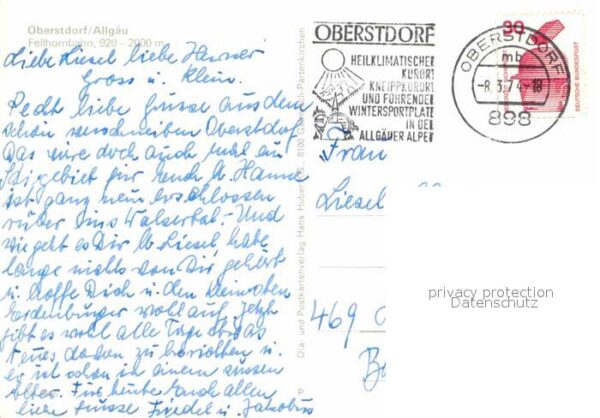 Oberstdorf/Allgäu
Fellhornbahn, 920 – 2000 m
Liebe Liesel liebe
Gross u. Klein.
Recht liebe Grüsse aus dem
schön verschneiten Oberstdorf
Das wäre doch auch mal ein
Skigebiet für Euch
ist ganz neu erschlossen
rüber ins Walsertal - Und
wie geht es Dir lb Liesel, habe
lange nichts von Dir gehört
u. hoffe Dich u. den kleinsten
Erdenbürger wohl auf. Jetzt
gibt es wohl alle Tage etwas
Neues davon zu berichten u.
er ist schon in einem süssen
Alter. Für heute Euch allen
liebe Grüsse Friedel u. Jakobus
Dia- und Postkartenverlag Hans Huber 8100 Garmisch-Partenkirchen
P
OBERSTDORF
HEILKLIMATISCHER
KURORT
KNEIPPKURORT
UND FÜHRENDER
WINTERSPORTPLATZ
IN DEN
ALLGÄUER ALPEN
OBERSTDORF
mb
-8.3.74-18
898
30
DEUTSCHE BUNDESPOST
Frau
Liesel
privacy protection
Datenschutz
469